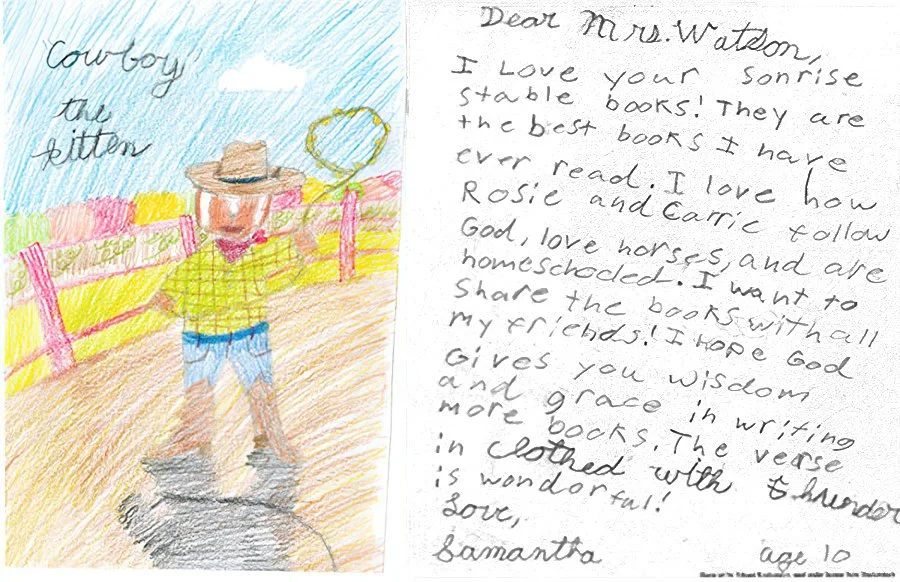 Cowboy
the
kitten
Dear Mrs. Watson,
I Love your Sonrise
stable books! They are
the best books I have
ever read. I love how
Rosie and Carrie follow
God, love horses, and are
homeschooled. I want to
share the books with all
my friends! I Hope God
Gives you wisdom
and grace in writing
more books. The verse
in clothed with thunder
is wonderful!
Love,
Samantha age 10